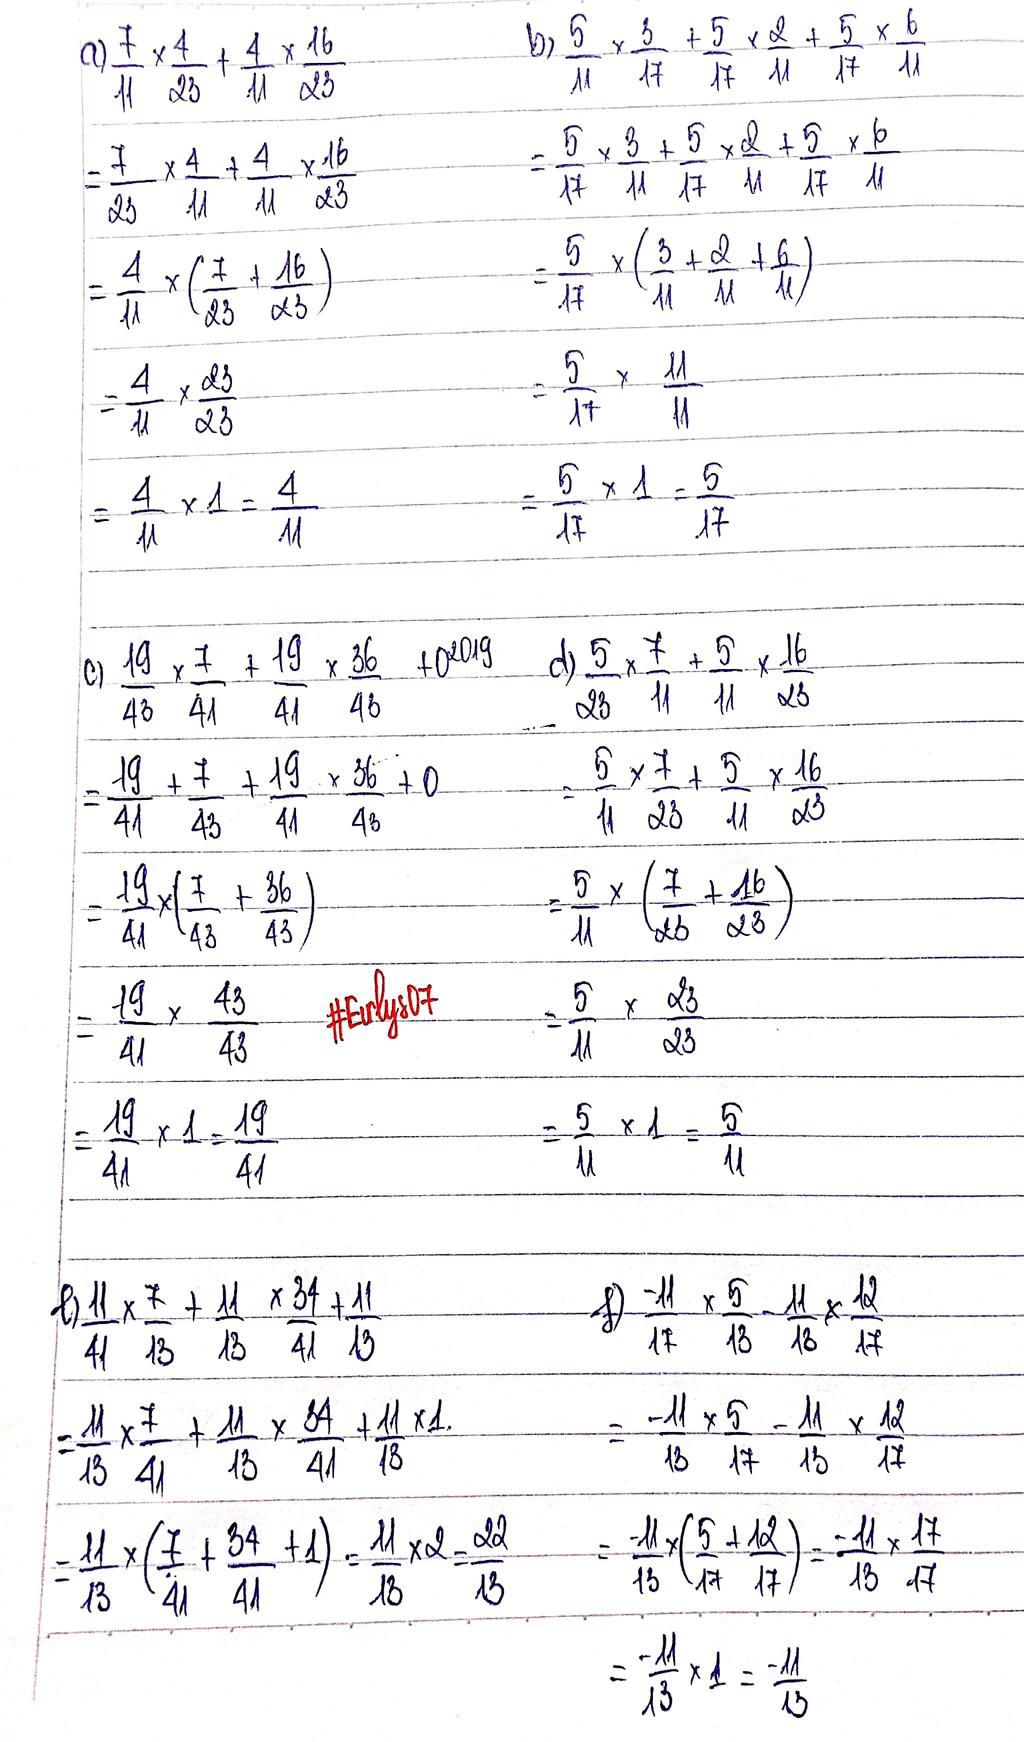 a) 7/11 × 4/23 + 4/11 × 16/23
= 7/23 × 4/11 + 4/11 × 16/23
= 4/11 × (7/23 + 16/23)
= 4/11 × 23/23
= 4/11 × 1 = 4/11
b) 5/11 × 3/17 + 5/17 × 2/11 + 5/17 × 6/11
= 5/17 × 3/11 + 5/17 × 2/11 + 5/17 × 6/11
= 5/17 × (3/11 + 2/11 + 6/11)
= 5/17 × 11/11
= 5/17 × 1 = 5/17
c) 19/43 × 7/41 + 19/41 × 36/43 + 0²⁰¹⁹
= 19/41 + 7/43 + 19/41 × 36/43 + 0
= 19/41 × (7/43 + 36/43)
= 19/41 × 43/43
= 19/41 × 1 = 19/41
#Eurlys07
d) 5/23 × 7/11 + 5/11 × 16/23
= 5/11 × 7/23 + 5/11 × 16/23
= 5/11 × (7/23 + 16/23)
= 5/11 × 23/23
= 5/11 × 1 = 5/11
e) 11/41 × 7/13 + 11/13 × 34/41 + 11/13
= 11/13 × 7/41 + 11/13 × 34/41 + 11/13 × 1.
= 11/13 × (7/41 + 34/41 + 1) = 11/13 × 2 = 22/13
f) -11/17 × 5/13 - 11/13 × 12/17
= -11/13 × 5/17 - 11/13 × 12/17
= -11/13 × (5/17 + 12/17) = -11/13 × 17/17
= -11/13 × 1 = -11/13